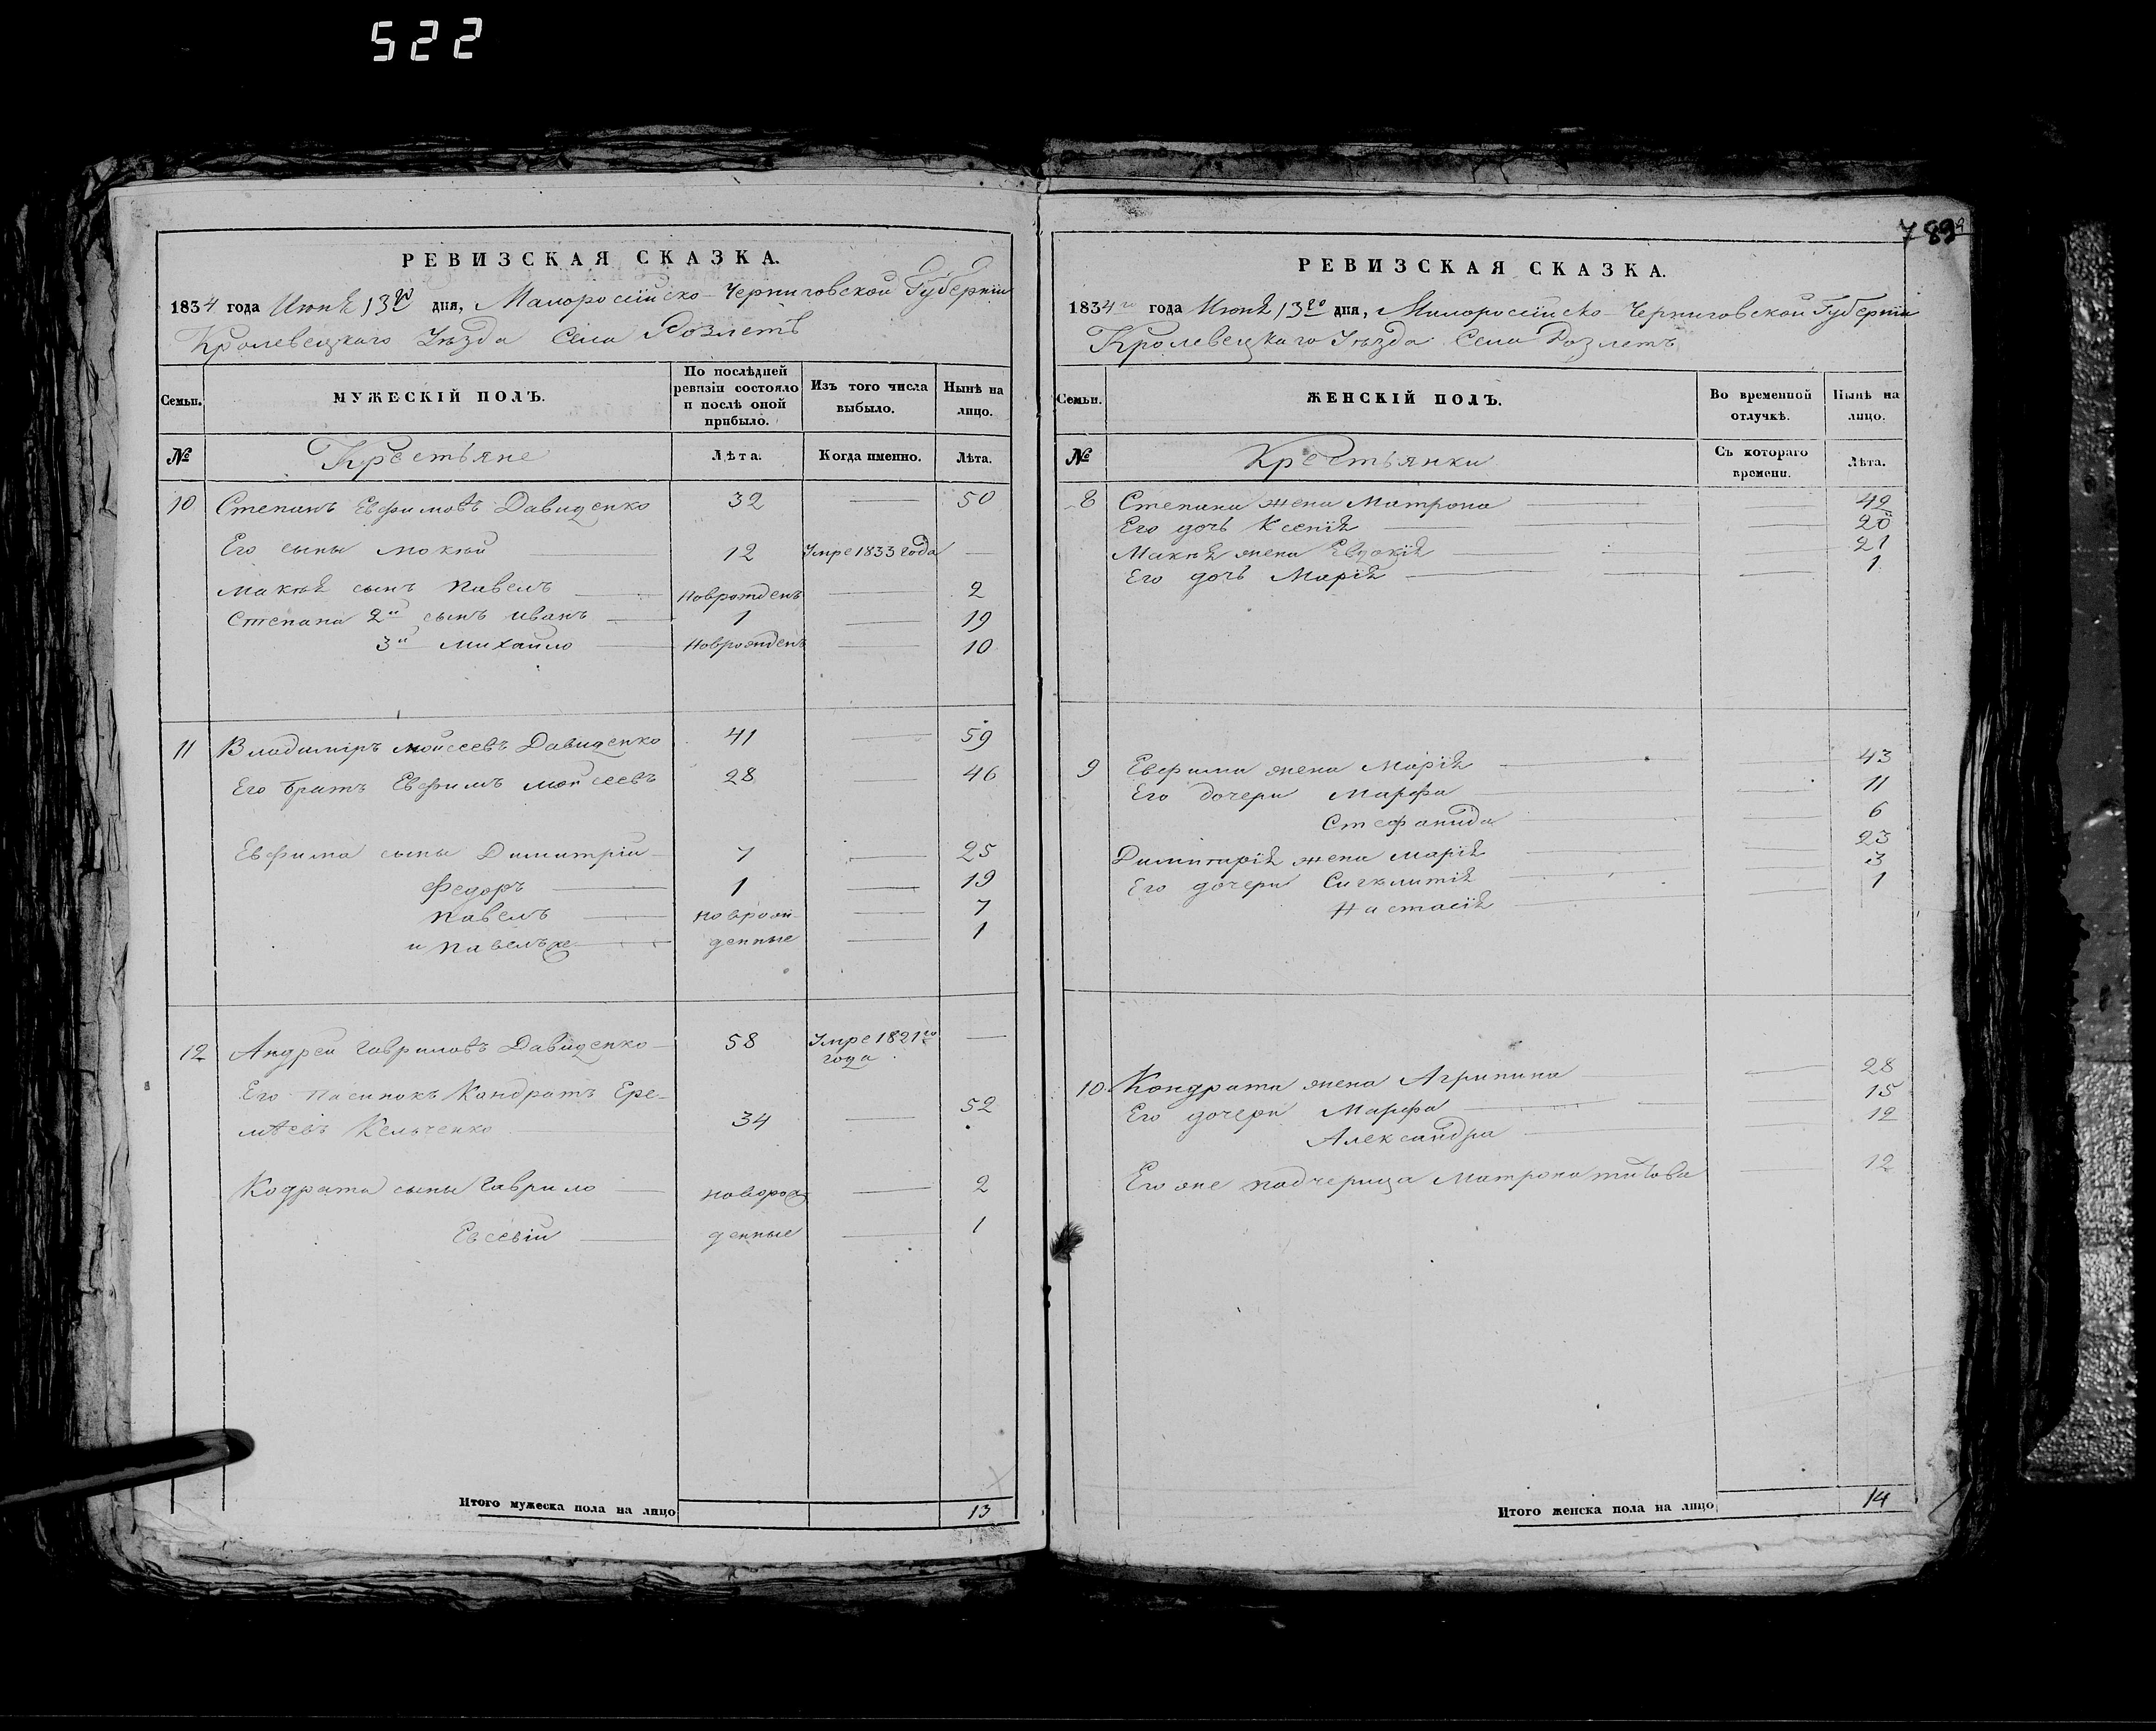 522
РЕВИЗСКАЯ СКАЗКА.
1834 года Июня 13го дня, Малороссійско-Черниговской Губерніи
Кролевецкаго Уѣзда Села Розлетъ
Семьи.
МУЖЕСКІЙ ПОЛЪ.
По послѣдней ревизіи состояло и послѣ оной прибыло.
Изъ того числа выбыло.
Нынѣ на лицо.
№ Крестьяне Лѣта. Когда именно. Лѣта.
10 Степанъ Евфимовъ Давиденко 32 — 50
Его сыны Мокѣй 12 Умре 1833 года —
Макѣя сынъ ПавелъНоврожденъ — 2
Степана 2й сынъ Иванъ 1 — 19
3й Михайло Новрожденъ — 10
11 Владимиръ Мойсеевъ Давиденко 41 — 59
Его братъ Евфимъ Мойсеевъ 28 — 46
Евфима сыны Димитрій 7 — 25
Федоръ 1 — 19
Павелъ новрож- — 7
и Павелъ же денные — 1
12 Андрей Гавриловъ Давиденко 58 Умре 1821го года —
Его пасинокъ Кондратъ Ере-
мѣевъ Кельченко 34 — 52
Кодрата сыны Гаврило новорож — 2
Евсевій денные — 1
Итого мужеска пола на лицо 13
789
РЕВИЗСКАЯ СКАЗКА.
1834го года Июня 13го дня, Малороссійско-Черниговской Губерніи
Кролевецкаго Уѣзда Села Розлетъ
Семьи.
ЖЕНСКІЙ ПОЛЪ.
Во временной отлучкѣ.
Нынѣ на лицо.
№ Крестьянки Съ котораго времени. Лѣта.
8 Степана жена Матрона — 42
Его дочь Ксенія — 20
Макѣя жена Евдокія — 21
Его дочь Марія — 1
9 Евфима жена Марія — 43
Его дочери Марфа — 11
Стефанида — 6
Димитрія жена Марія — 23
Его дочери Сигклитія — 3
Настасія — 1
10 Кондрата жена Агрипина — 28
Его дочери Марфа — 15
Александра — 12
Его же падчерица Матрона — 12
Итого женска пола на лицо 14